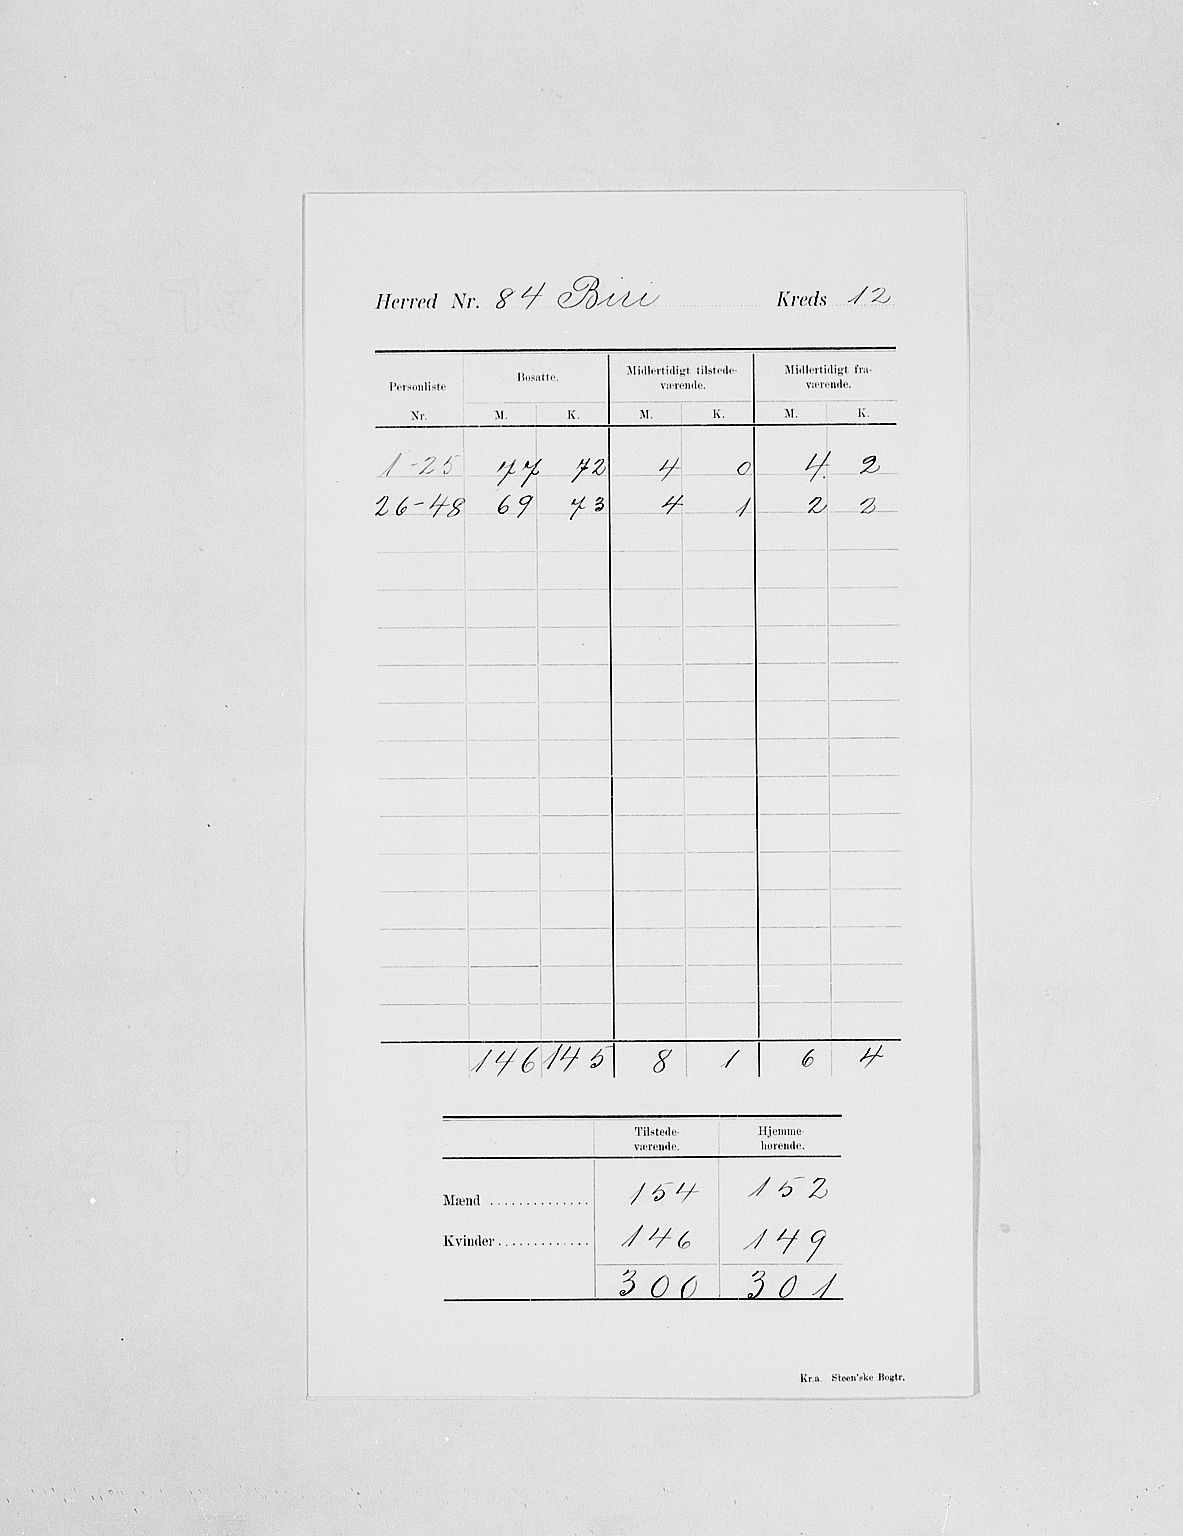 Herred Nr. 84 Biri Kreds 12
Personliste Nr. Bosatte. Midlertidigt tilstede-værende. Midlertidigt fra-værende.
M. K. M. K. M. K.
1-25 77 72 4 0 4 2
26-48 69 73 4 1 2 2
146 145 8 1 6 4
Tilstede-værende. Hjemme-hørende.
Mænd .............. 154 152
Kvinder ............. 146 149
300 301
Kr.a. Steen'ske Bogtr.